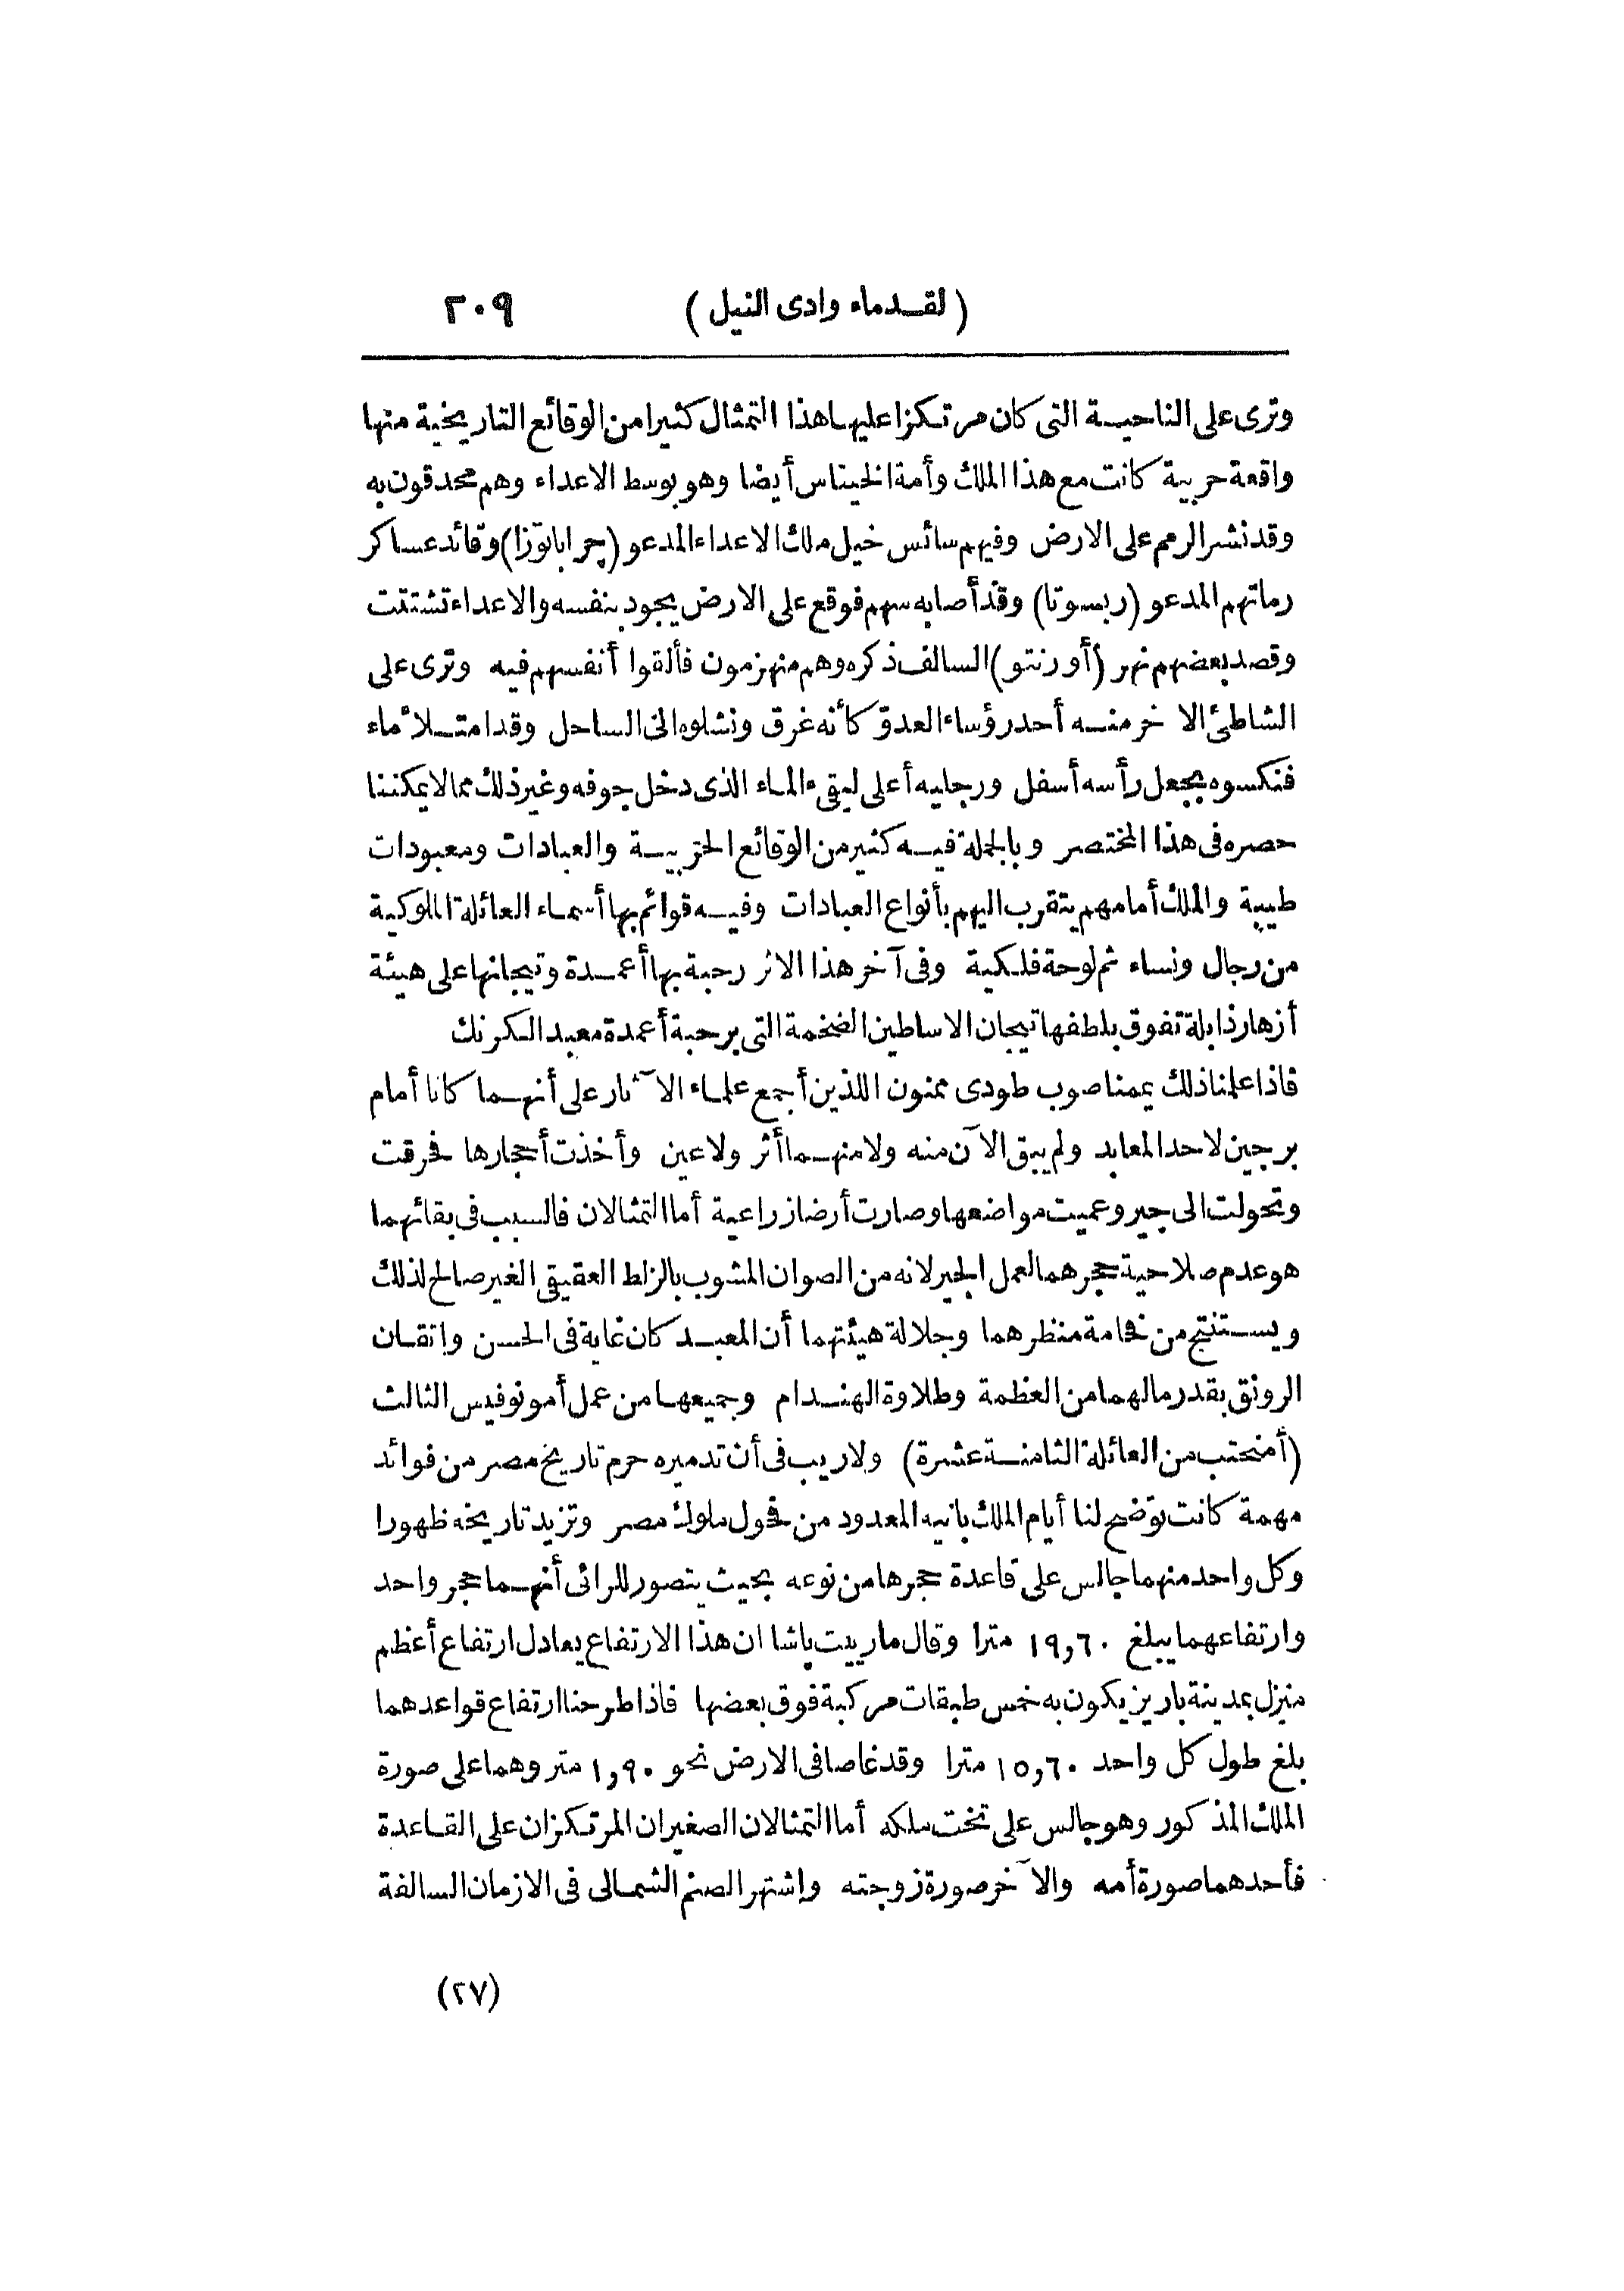 (لقدماء وادى النيل)
٢٠٩
وترى على الناحية التى كان مرتكزا عليها هذا التمثال كثيرا من الوقائع التاريخية منها
واقعة حربية كانت مع هذا الملك وأمة الخيتاس أيضا وهو بوسط الاعداء وهم محدقون به
وقد نشر الرمم على الارض وفيهم سائس خيل ملك الاعداء المدعو (چراباتوزا) وقائد عساكر
رماتهم المدعو (ربسوتا) وقد أصابه سهم فوقع على الارض يجود بنفسه والاعداء تشتتت
وقصد بعضهم نهر (أورنتو) السالف ذكره وهم منهزمون فألقوا أنفسهم فيه وترى على
الشاطئ الآخر منه أحد رؤساء العدوّ كأنه غرق ونشلوه الى الساحل وقد امتلأ ماء
فنكسوه بجعل رأسه أسفل ورجليه أعلى ليقىء الماء الذى دخل جوفه وغير ذلك مما لا يمكننا
حصره فى هذا المختصر وبالجملة فيه كثير من الوقائع الحربية والعبادات ومعبودات
طيبة والملك أمامهم يتقرب اليهم بأنواع العبادات وفيه قوائم بها أسماء العائلة الملوكية
من رجال ونساء ثم لوحة فلكية وفى آخر هذا الاثر رحبة بها أعمدة وتيجانها على هيئة
أزهار ذابلة تفوق بلطفها تيجان الاساطين الضخمة التى برحبة أعمدة معبد الكرنك
فاذا علمنا ذلك يممنا صوب طودى ممنون اللذين أجمع علماء الآثار على أنهما كانا أمام
برجين لاحد المعابد ولم يبق الآن منه ولا منهما أثر ولا عين وأخذت أحجارها فحرقت
وتحولت الى جير وعميت مواضعها وصارت أرضا زراعية أما التمثالان فالسبب فى بقائهما
هو عدم صلاحية حجرهما لعمل الجير لانه من الصوان المشوب بالزلط العقيقى الغير صالح لذلك
ويستنتج من فخامة منظرهما وجلالة هيئتهما أن المعبد كان غاية فى الحسن واتقان
الرونق بقدر مالهما من العظمة وطلاوة الهندام وجميعها من عمل أمونوفيس الثالث
(أمنحتب من العائلة الثامنة عشرة) ولا ريب فى أن تدميره حرم تاريخ مصر من فوائد
مهمة كانت توّضح لنا أيام الملك بانيه المعدود من فحول ملوك مصر وتزيد تاريخه ظهورا
وكل واحد منهما جالس على قاعدة حجرها من نوعه بحيث يتصور للرائى أنهما حجر واحد
وارتفاعهما يبلغ ١٩,٦٠ مترا وقال مارييت پاشا ان هذا الارتفاع يعادل ارتفاع أعظم
منزل بمدينة باريز يكون به خمس طبقات مركبة فوق بعضها فاذا طرحنا ارتفاع قواعدهما
بلغ طول كل واحد ١٥,٦٠ مترا وقد غاصا فى الارض نحو ١,٩٠ متر وهما على صورة
الملك المذكور وهو جالس على تخت ملكه أما التمثالان الصغيران المرتكزان على القاعدة
فأحدهما صورة أمه والآخر صورة زوجته واشتهر الصنم الشمالى فى الازمان السالفة
(٢٧)